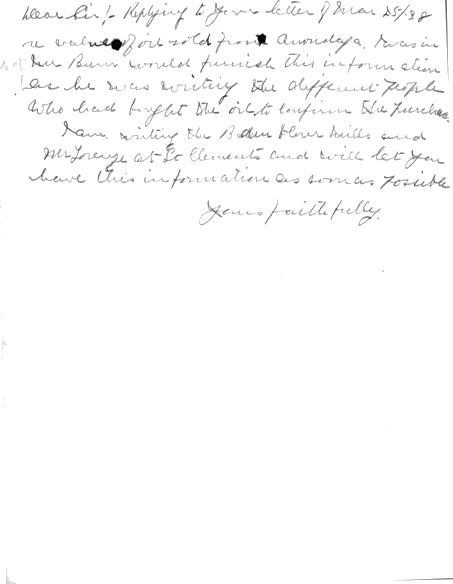 Dear Sir/- Replying to your letter of Mar 25/38
re value of oil sold from Onondaga. I was in
Mr Burn would furnish this information
as he was writing the different people
who had bought the oil to confirm the purchase.
I am writing the Baden Flour Mills and
Mr Lorenze at St Clements and will let you
have this information as soon as possible
Yours faithfully.